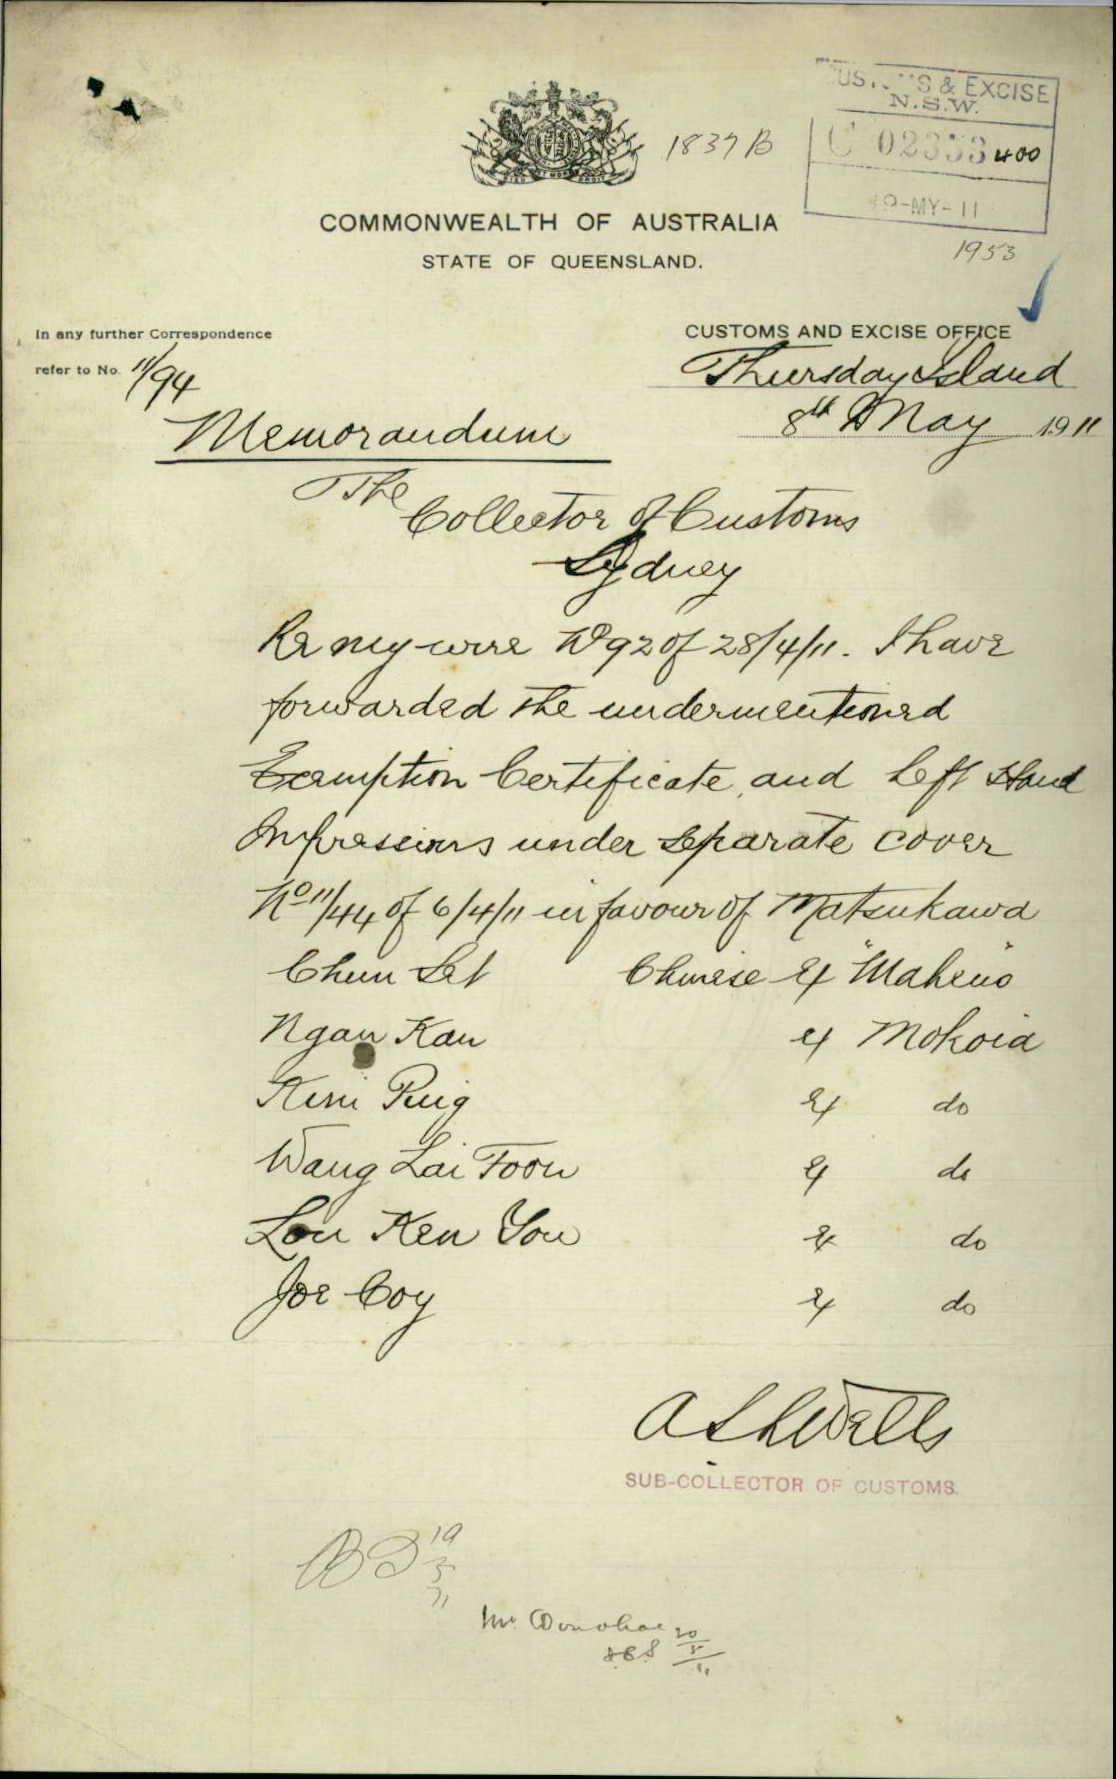 CUSTOMS & EXCISE
N.S.W.
1837 B
C 02353 400
9-MY-11
COMMONWEALTH OF AUSTRALIA
1953
STATE OF QUEENSLAND.
In any further Correspondence
refer to No. 11/94
CUSTOMS AND EXCISE OFFICE
Thursday Island
8th May 1911
Memorandum
The
Collector of Customs
Sydney
Re my wire No 92 of 28/4/11. I have
forwarded the undermentioned
Exemption Certificate, and Left Hand
Impressions under separate cover
No 11/44 of 6/4/11 in favour of Matsukawa
Chun Set Chinese Ex "Maheno"
Ngan Kan Ex Mokoia
Kim Ping Ex do
Wang Lai Foon Ex do
Lou Ken You Ex do
Joe Coy Ex do
Wells
SUB-COLLECTOR OF CUSTOMS.
19/5/11
Mr. Donohoe 20/5/11